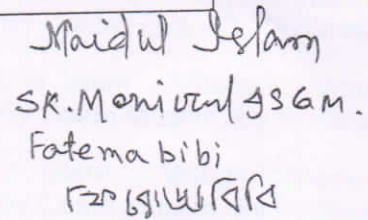 Maidul Islam
SK. Monirul ISGM.
Fatema bibi
বিবি